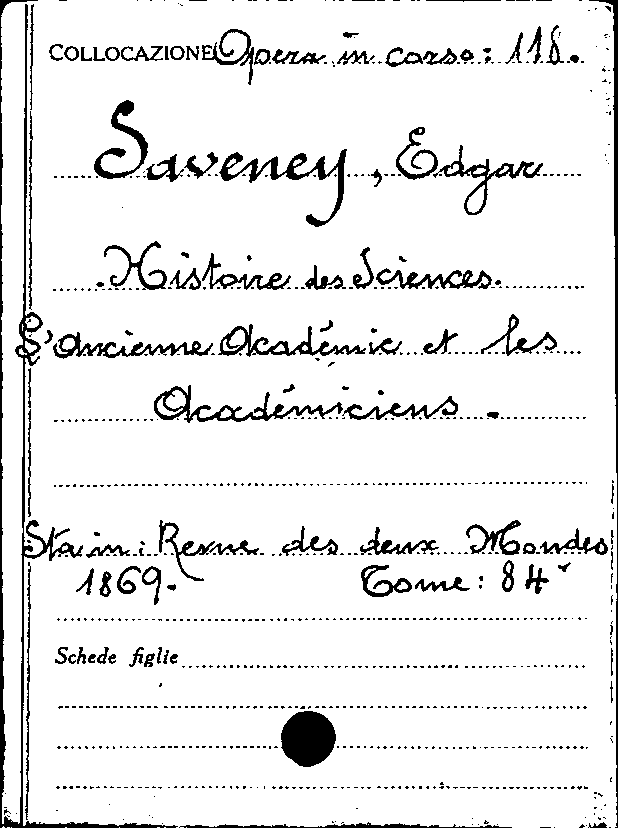 COLLOCAZIONE Opera in corso: 118.
Saveney, Edgar
Histoire des Sciences.
L'Ancienne Académie et les
Académiciens.
Sta in: Revue des deux Mondes
1869. Tome: 84
Schede figlie